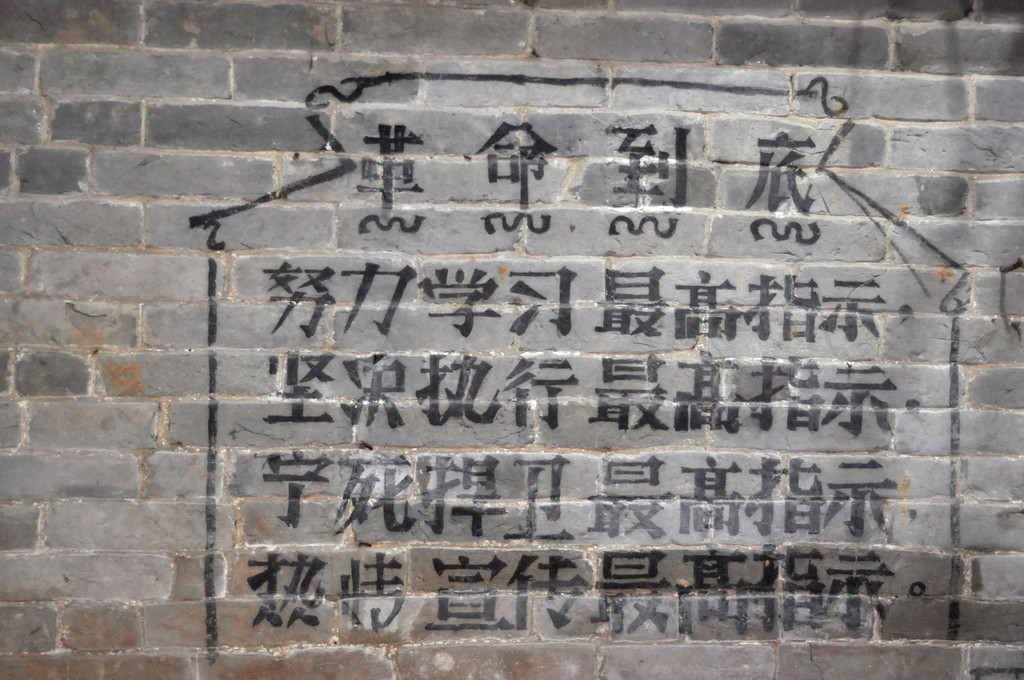 革命到底
努力学习最高指示，
坚决执行最高指示，
宁死捍卫最高指示，
热情宣传最高指示。